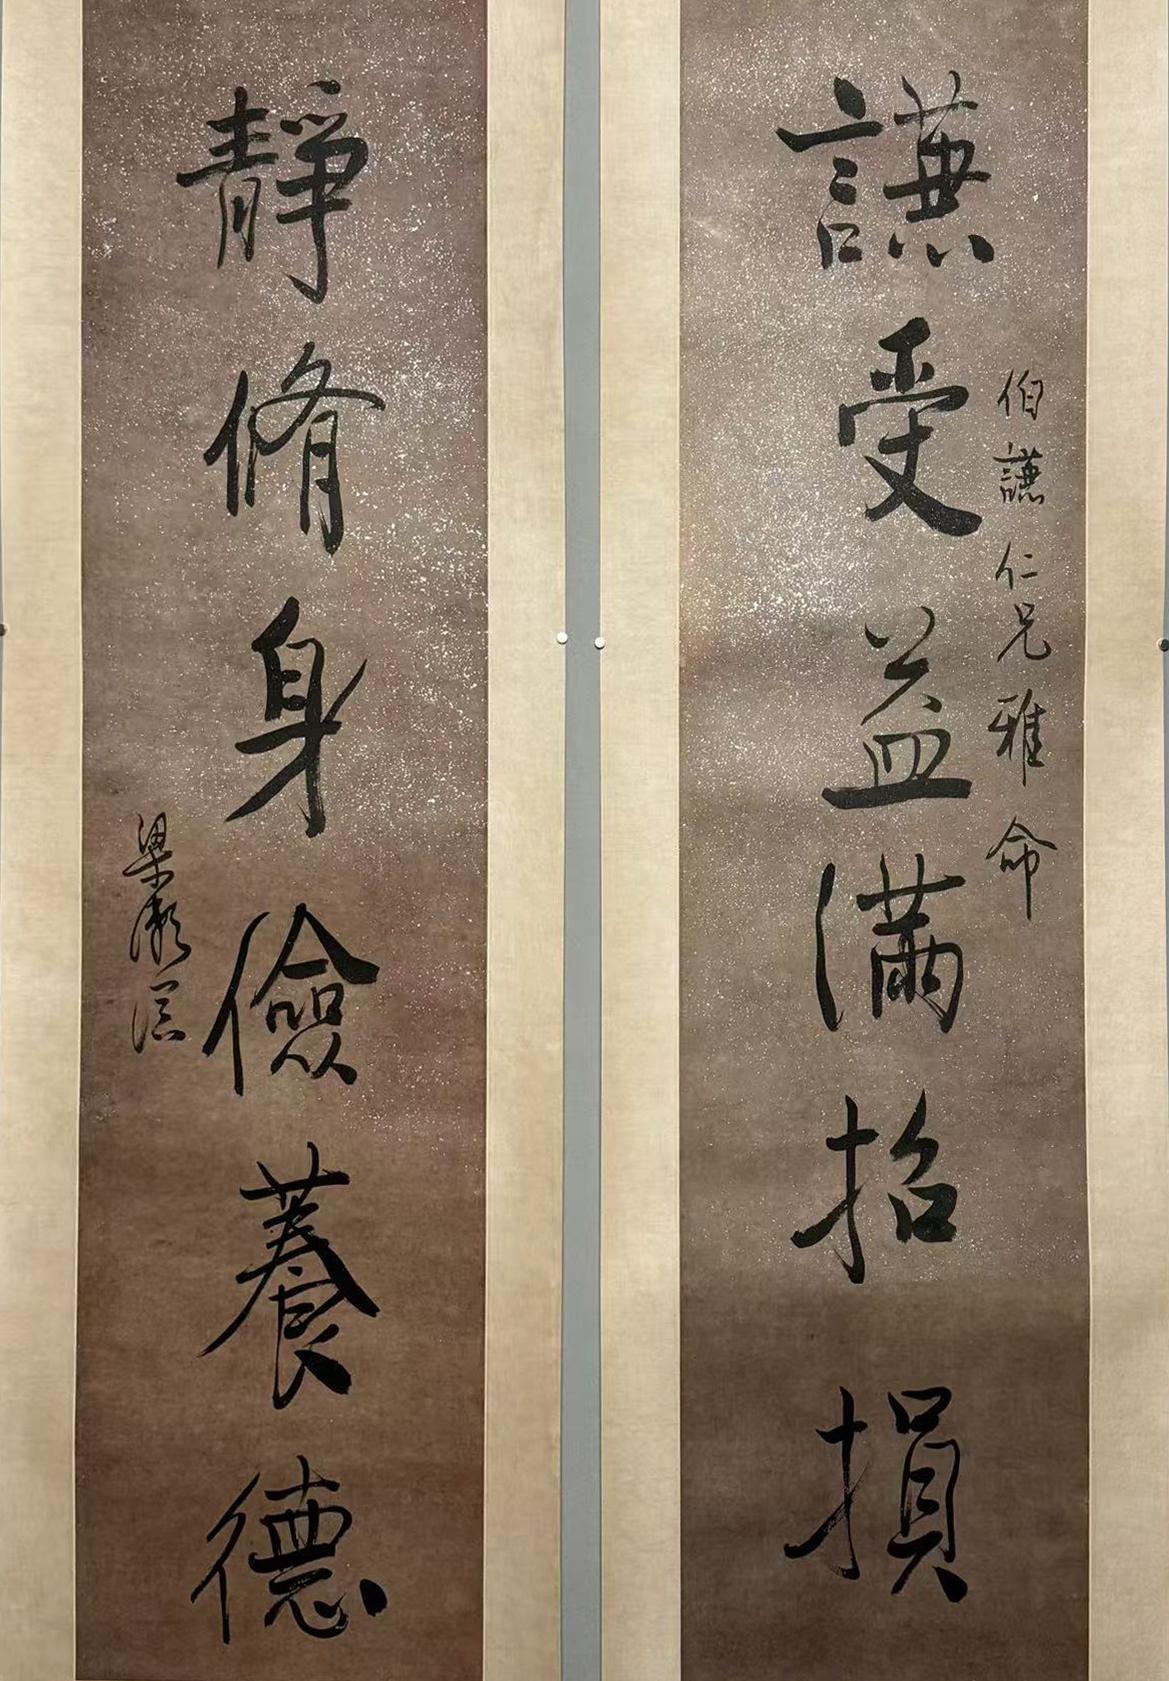 謙受益滿招損
伯謙仁兄雅命
靜脩身儉養德
梁漱溟